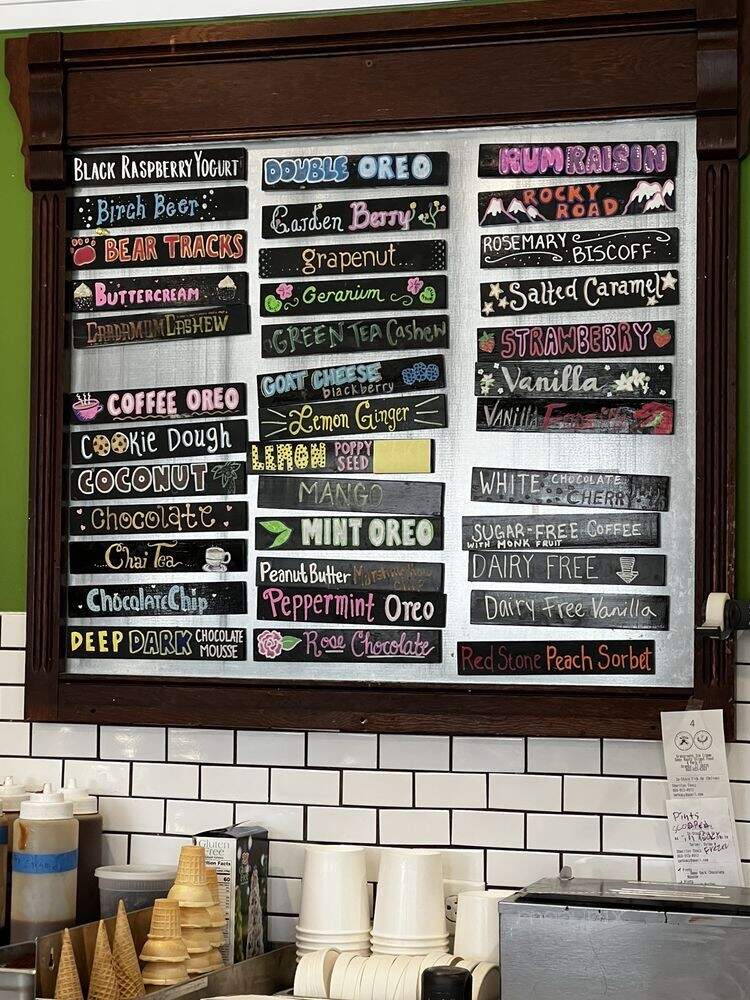 BLACK RASPBERRY YOGURT
Birch Beer
BEAR TRACKS
BUTTERCREAM
CARDAMUM CASHEW
COFFEE OREO
COOKIE DOUGH
COCONUT
Chocolate
Chai Tea
CHOCOLATE CHIP
DEEP DARK CHOCOLATE
MOUSSE
DOUBLE OREO
Garden Berry
grapenut...
Geranium
GREEN TEA Cashew
GOAT CHEESE
blackberry
Lemon Ginger
LEMON POPPY
SEED
MANGO
MINT OREO
PEANUT BUTTER
Peppermint Oreo
Rose Chocolate
RUM RAISIN
ROCKY
ROAD
ROSEMARY
BISCOFF
Salted Caramel
STRAWBERRY
Vanilla
VANILLA
WHITE CHOCOLATE
CHERRY
SUGAR-FREE COFFEE
WITH MONK FRUIT
DAIRY FREE
Dairy Free Vanilla
Red Stone Peach Sorbet
4
Pints
Gluten
Free